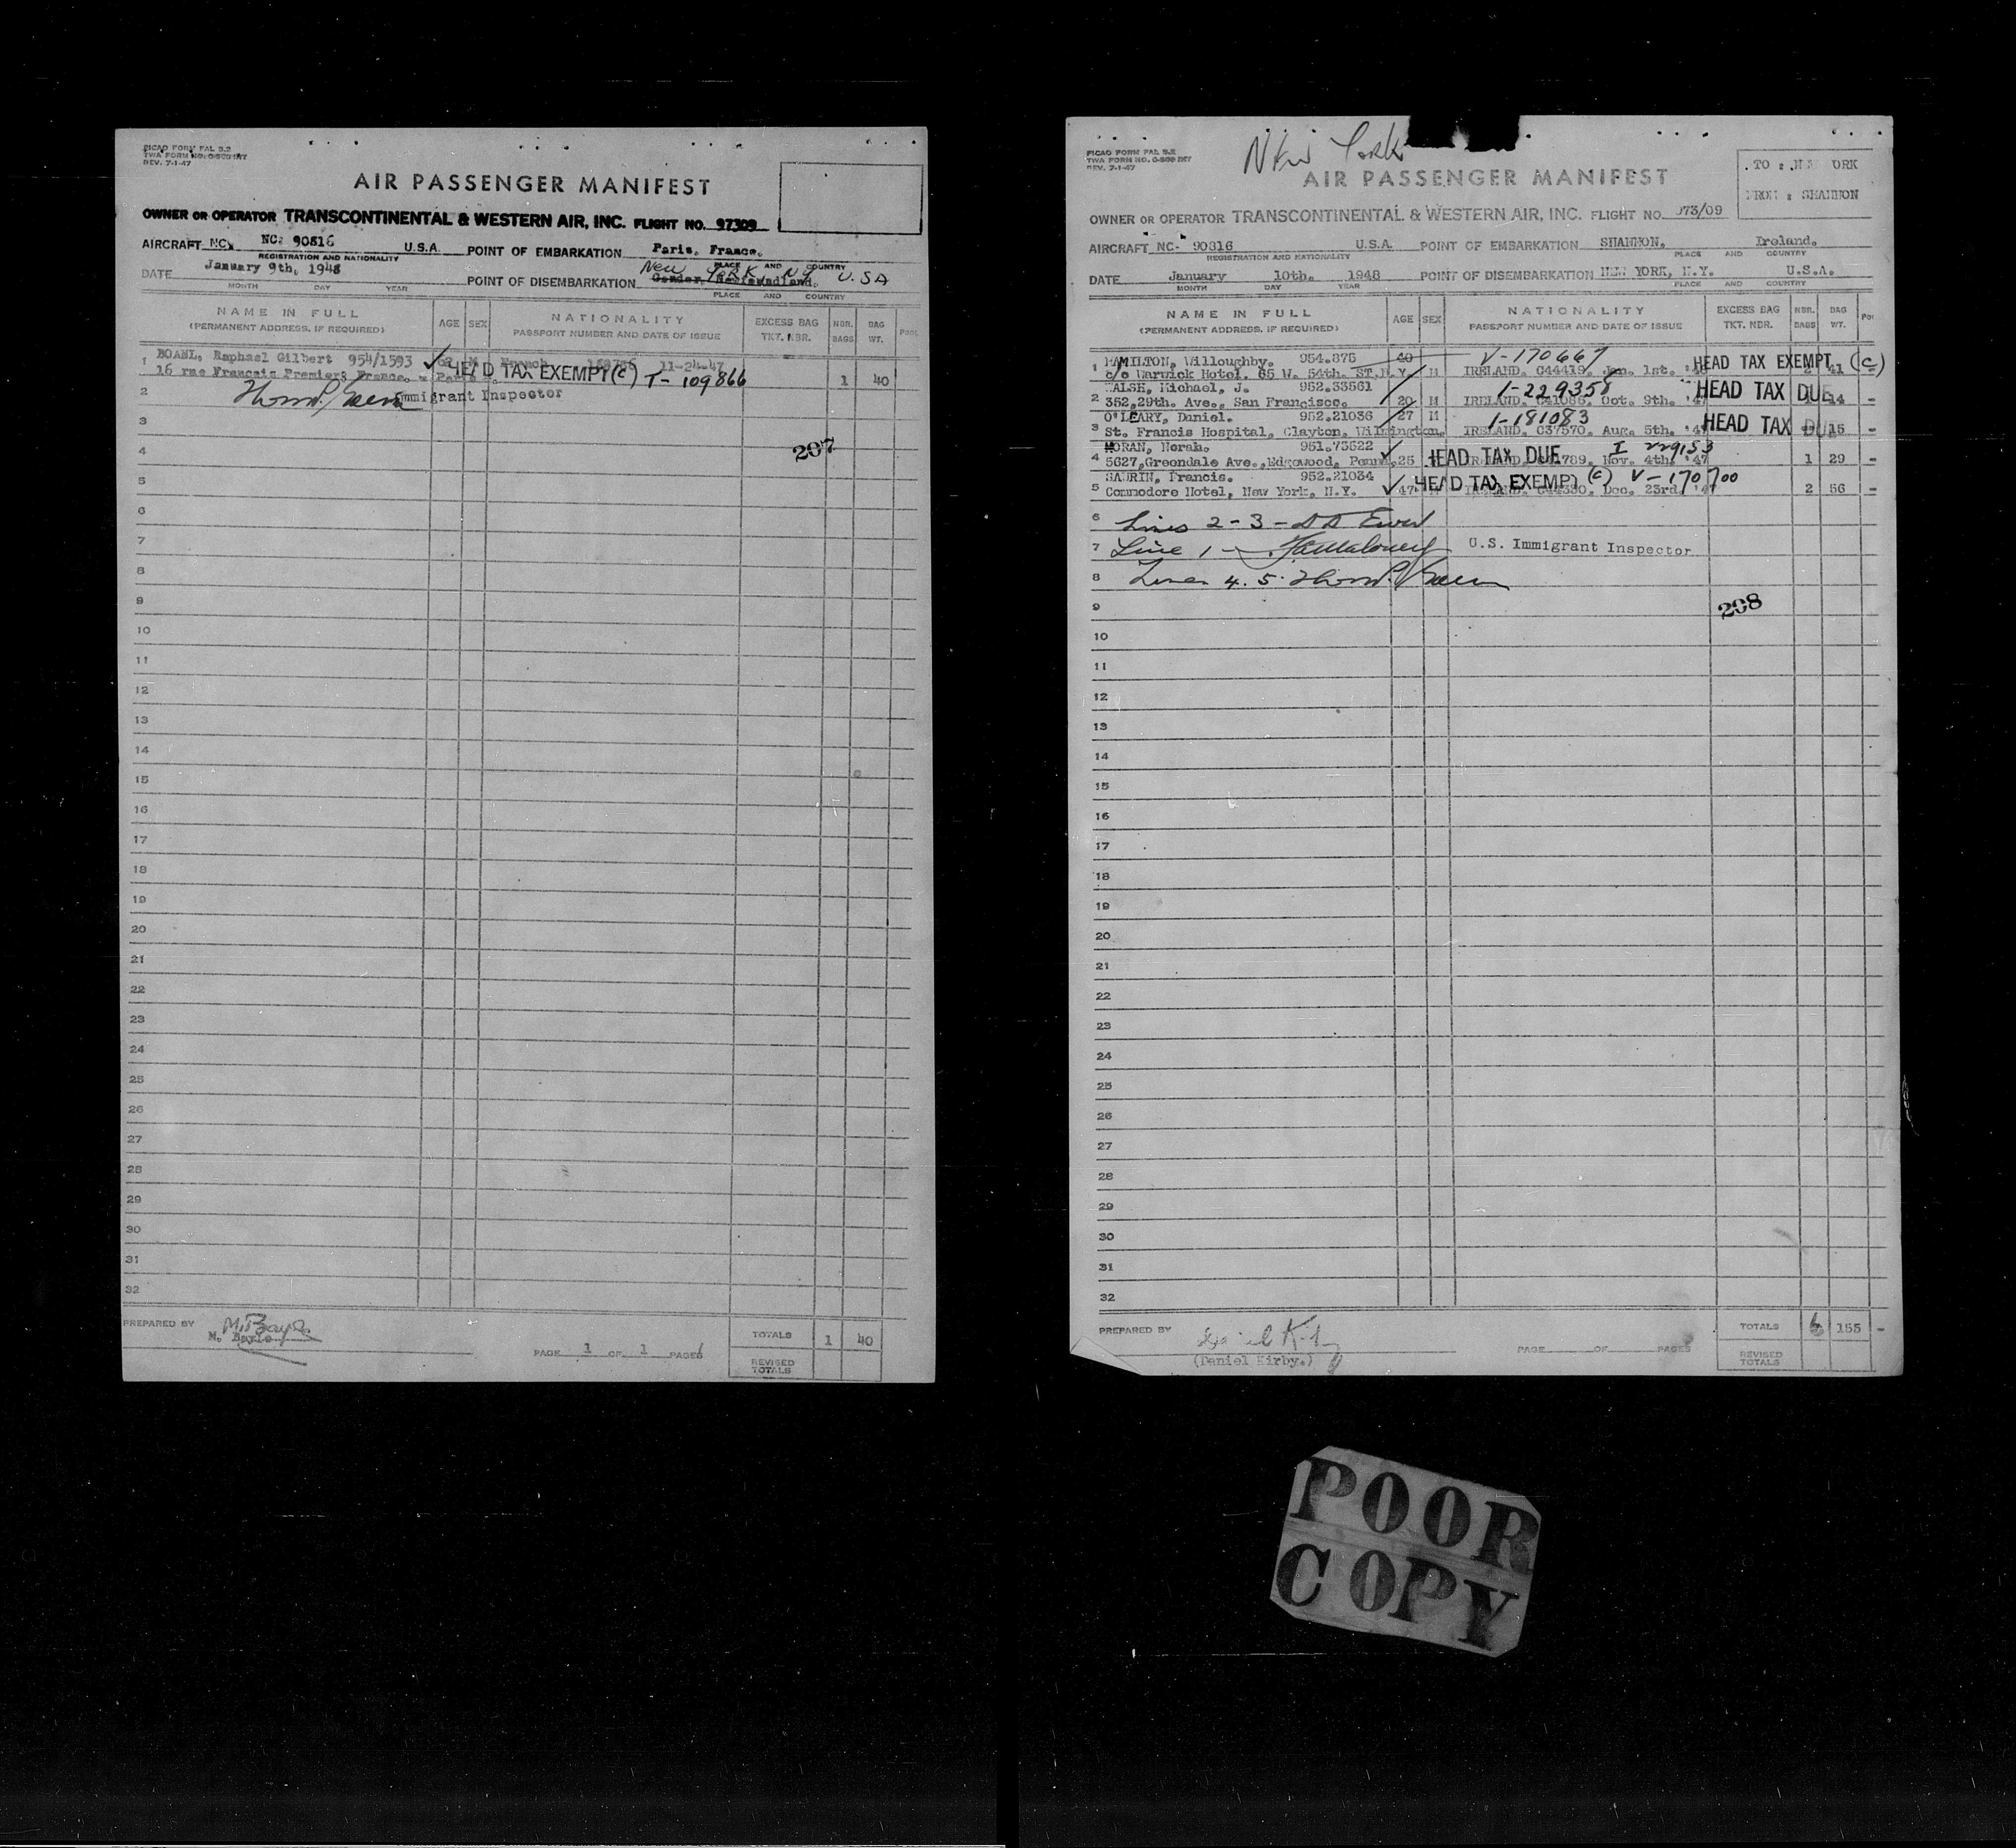 PICAO FORM FAL 2.2
REV. 7-1-47
AIR PASSENGER MANIFEST
OWNER OR OPERATOR TRANSCONTINENTAL & WESTERN AIR, INC. FLIGHT NO. 97309
AIRCRAFT NC. NC: 90816 U.S.A. POINT OF EMBARKATION Paris, France.
REGISTRATION AND NATIONALITY PLACE AND COUNTRY
DATE January 9th, 1948 POINT OF DISEMBARKATION Gander, Newfoundland. New York NY U.S.A
MONTH DAY YEAR PLACE AND COUNTRY
NAME IN FULL AGE SEX NATIONALITY EXCESS BAG NBR. BAG POOL
(PERMANENT ADDRESS, IF REQUIRED) PASSPORT NUMBER AND DATE OF ISSUE TKT. NBR. BAGS WT.
1 Raphael Gilbert 954/1593 M French 11-24-47
16 rue Francois Premier; France. HEAD TAX EXEMPT (c) T-109866 1 40
2 Immigrant Inspector
3
4 207
5
6
7
8
9
10
11
12
13
14
15
16
17
18
19
20
21
22
23
24
25
26
27
28
29
30
31
32
PREPARED BY M. Bayle TOTALS 1 40
PAGE 1 OF 1 PAGES
REVISED TOTALS
New York
PICAO FORM FAL 2.2
REV. 7-1-47
AIR PASSENGER MANIFEST
TO : NEW YORK
FROM : SHANNON
OWNER OR OPERATOR TRANSCONTINENTAL & WESTERN AIR, INC. FLIGHT NO. 973/09
AIRCRAFT NC- 90816 U.S.A. POINT OF EMBARKATION SHANNON, Ireland.
REGISTRATION AND NATIONALITY PLACE AND COUNTRY
DATE January 10th. 1948 POINT OF DISEMBARKATION NEW YORK, N.Y. U.S.A.
MONTH DAY YEAR PLACE AND COUNTRY
NAME IN FULL AGE SEX NATIONALITY EXCESS BAG NBR. BAG
(PERMANENT ADDRESS, IF REQUIRED) PASSPORT NUMBER AND DATE OF ISSUE TKT. NBR. BAGS WT.
1 HAMILTON, Willoughby. 954.875 40 V-170667 HEAD TAX EXEMPT (c)
c/o Warwick Hotel. 65 W. 54th. ST.N.Y. M IRELAND. C44419. Jan. 1st. 41 -
WALSH, Michael, J. 952.33561 1-229358 HEAD TAX DUE
2 352,29th. Ave., San Francisco. 20 M IRELAND. C41086. Oct. 9th. '47 14 -
O'LEARY, Daniel. 952.21036 27 M 1-181083 HEAD TAX DUE
3 St. Francis Hospital, Clayton, Wilmington. IRELAND. C37570. Aug. 5th. '47 15 -
MORAN, Norah. 951.73522 I 229153
4 5627,Greendale Ave.,Edgewood, Penna. 25 HEAD TAX DUE Nov. 4th. '47 1 29 -
SAURIN, Francis. 952.21034 HEAD TAX EXEMPT (c) V-170700
5 Commodore Hotel, New York, N.Y. 47 Dec. 23rd. '47 2 56 -
6 Lines 2-3 -
7 Line 1 - U.S. Immigrant Inspector
8 Lines 4. 5.
9 208
10
11
12
13
14
15
16
17
18
19
20
21
22
23
24
25
26
27
28
29
30
31
32
PREPARED BY TOTALS 6 155 -
(Daniel Kirby.) PAGE OF PAGES
REVISED TOTALS
POOR
COPY